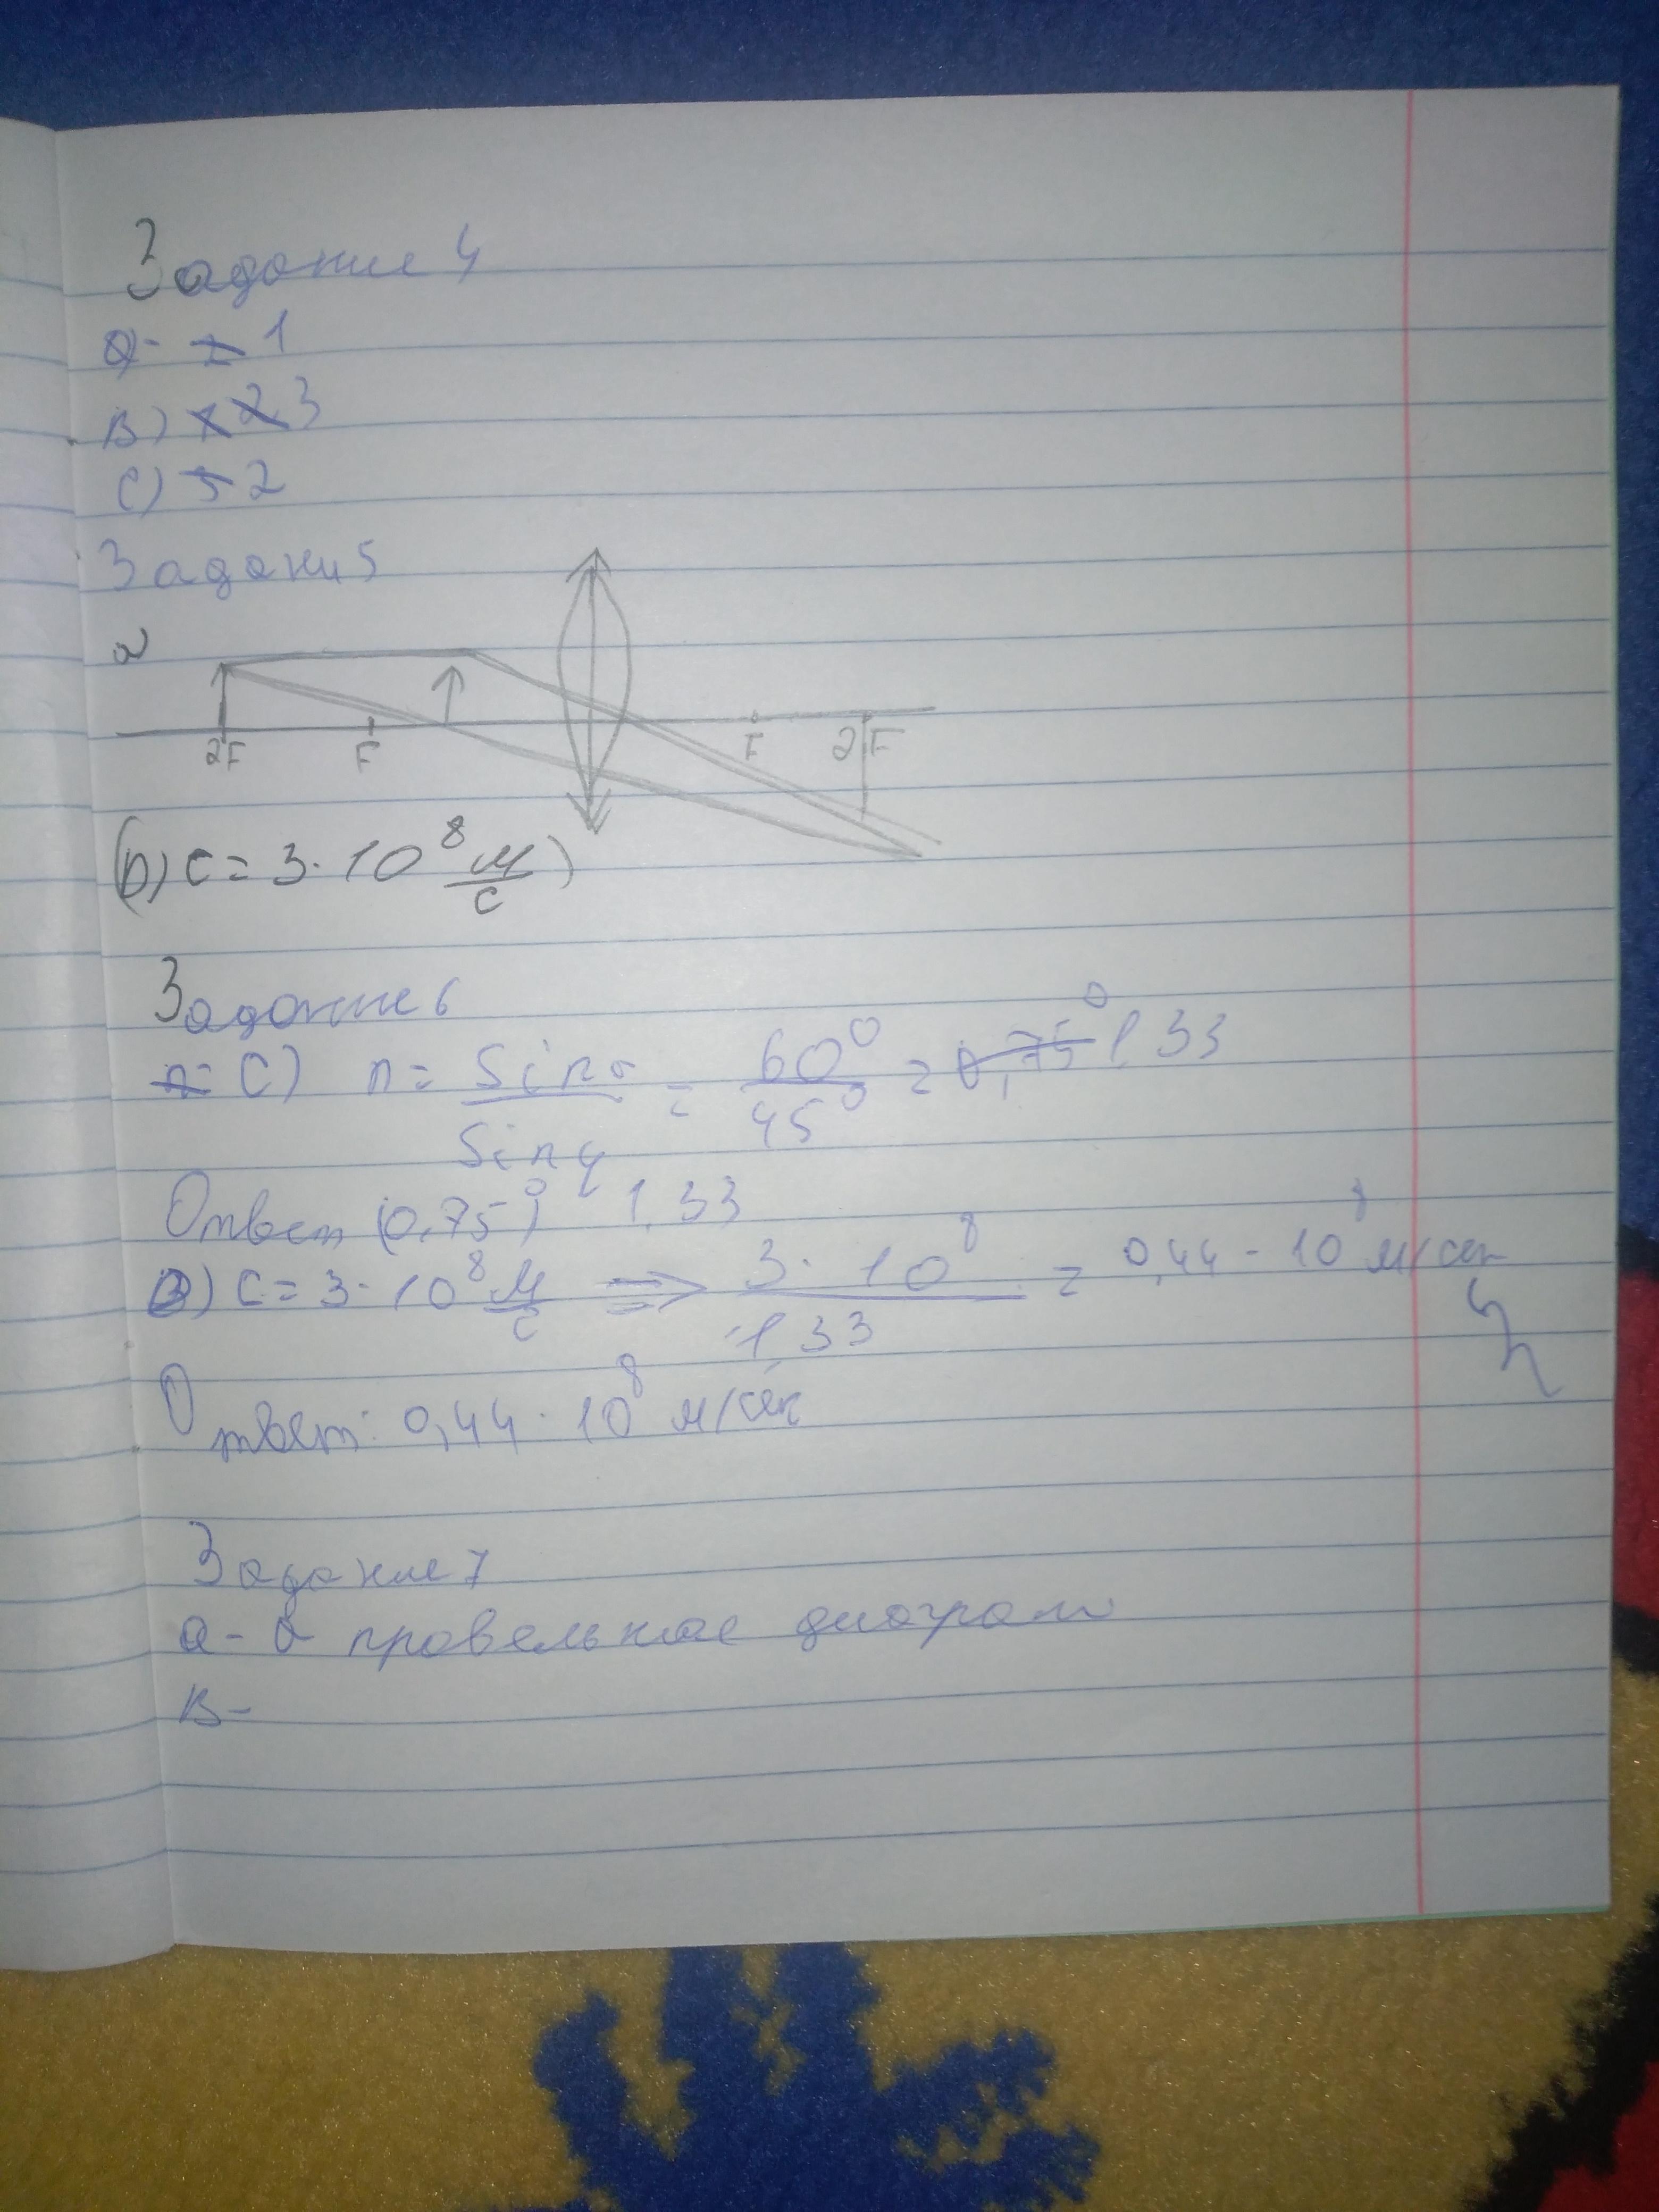 Задание 4
a) 1
B) 3
C) 2
Задани 5
a)
2F F F 2F
(b) c = 3 · 10⁸ м/с)
Задание 6
C) n = Sinα / Sinγ = 60° / 45° = 0,75° 1,33
Ответ (0,75)° 1,33
B) C = 3 · 10⁸ м/с ⇒ 3 · 10⁸ / 1,33 = 0,44 · 10⁸ м/сек
Ответ: 0,44 · 10⁸ м/сек
Задание 7
a - в правельное диограм
B -